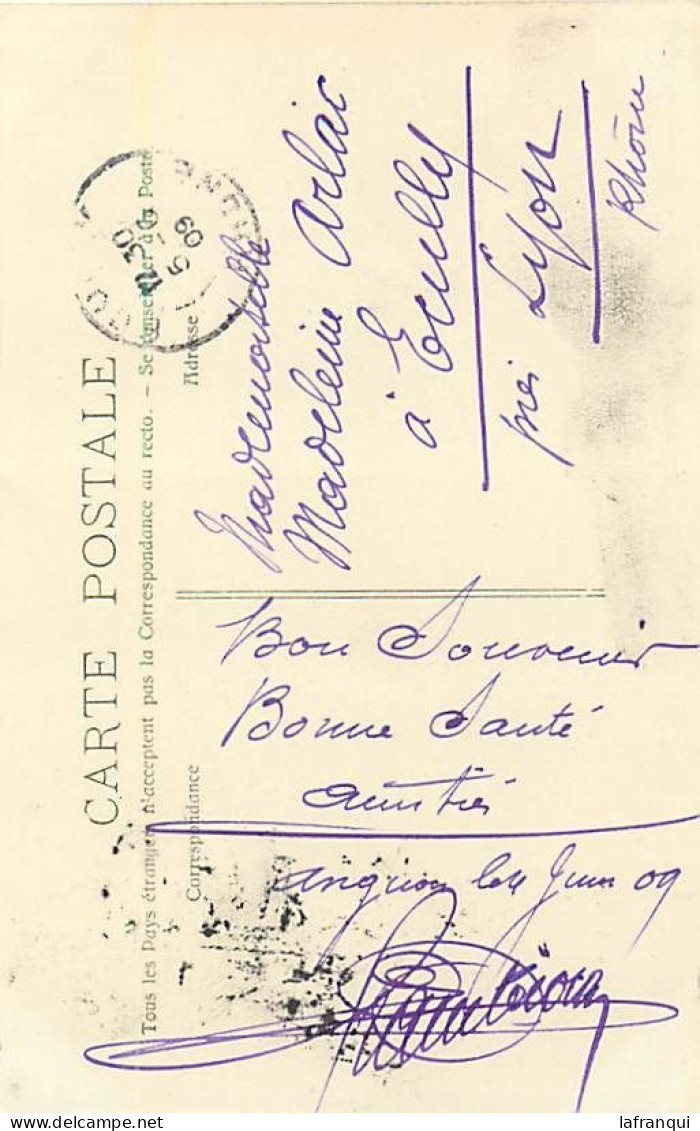 CARTE POSTALE
Tous les Pays étrangers n'acceptent pas la Correspondance au recto. - Se renseigner à la Poste
Correspondance
Adresse
11 30
5 - 6
09
Mademoiselle
Madeleine Arlaic
à Ecully
près Lyon
Rhône
Bon Souvenir
Bonne Santé
Amitiés
le 4 Juin 09
lafranqui